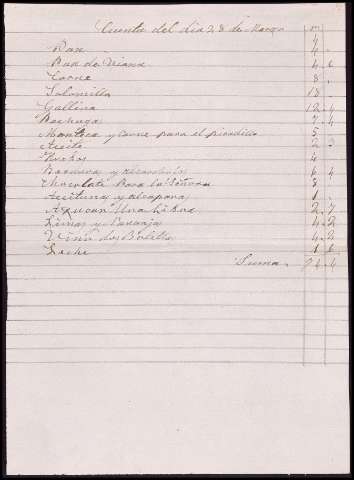 Cuenta del dia 28 de Marzo
Pan 4
Pan de Viana 4 6
Carne 8
Solomillo 18
Gallina 12 4
Pechuga 7 4
Manteca y Carne para el picadillo 5
Aceite 2 3
Huebos 4
6 4
Chocolate Para la Señora 8
Aceituna y alcaparra 1
Azucar Una Libra 2 7
Limas y Naranja 4 2
Vino dos Botellas 4 2
Leche 1 6
Suma. 94 4